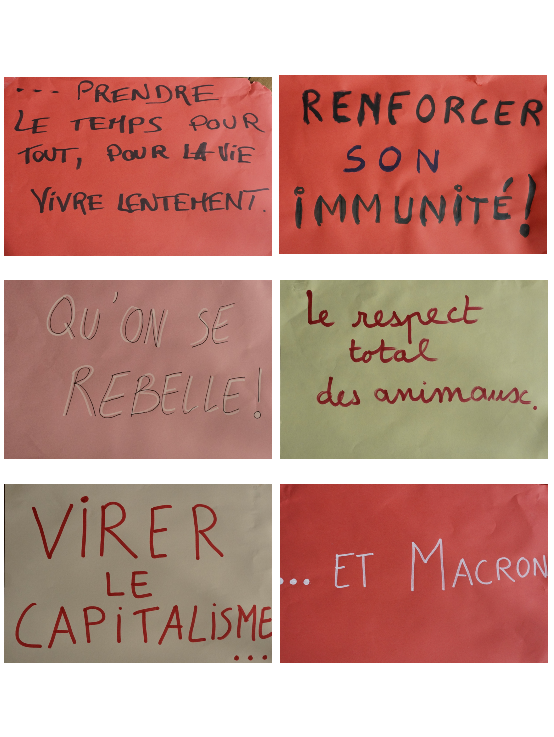 ... PRENDRE
LE TEMPS POUR
TOUT, POUR LA VIE
VIVRE LENTEMENT.
RENFORCER
SON
IMMUNITÉ!
QU'ON SE
REBELLE!
Le respect
total
des animaux.
VIRER
LE
CAPITALISME
...
... ET MACRON